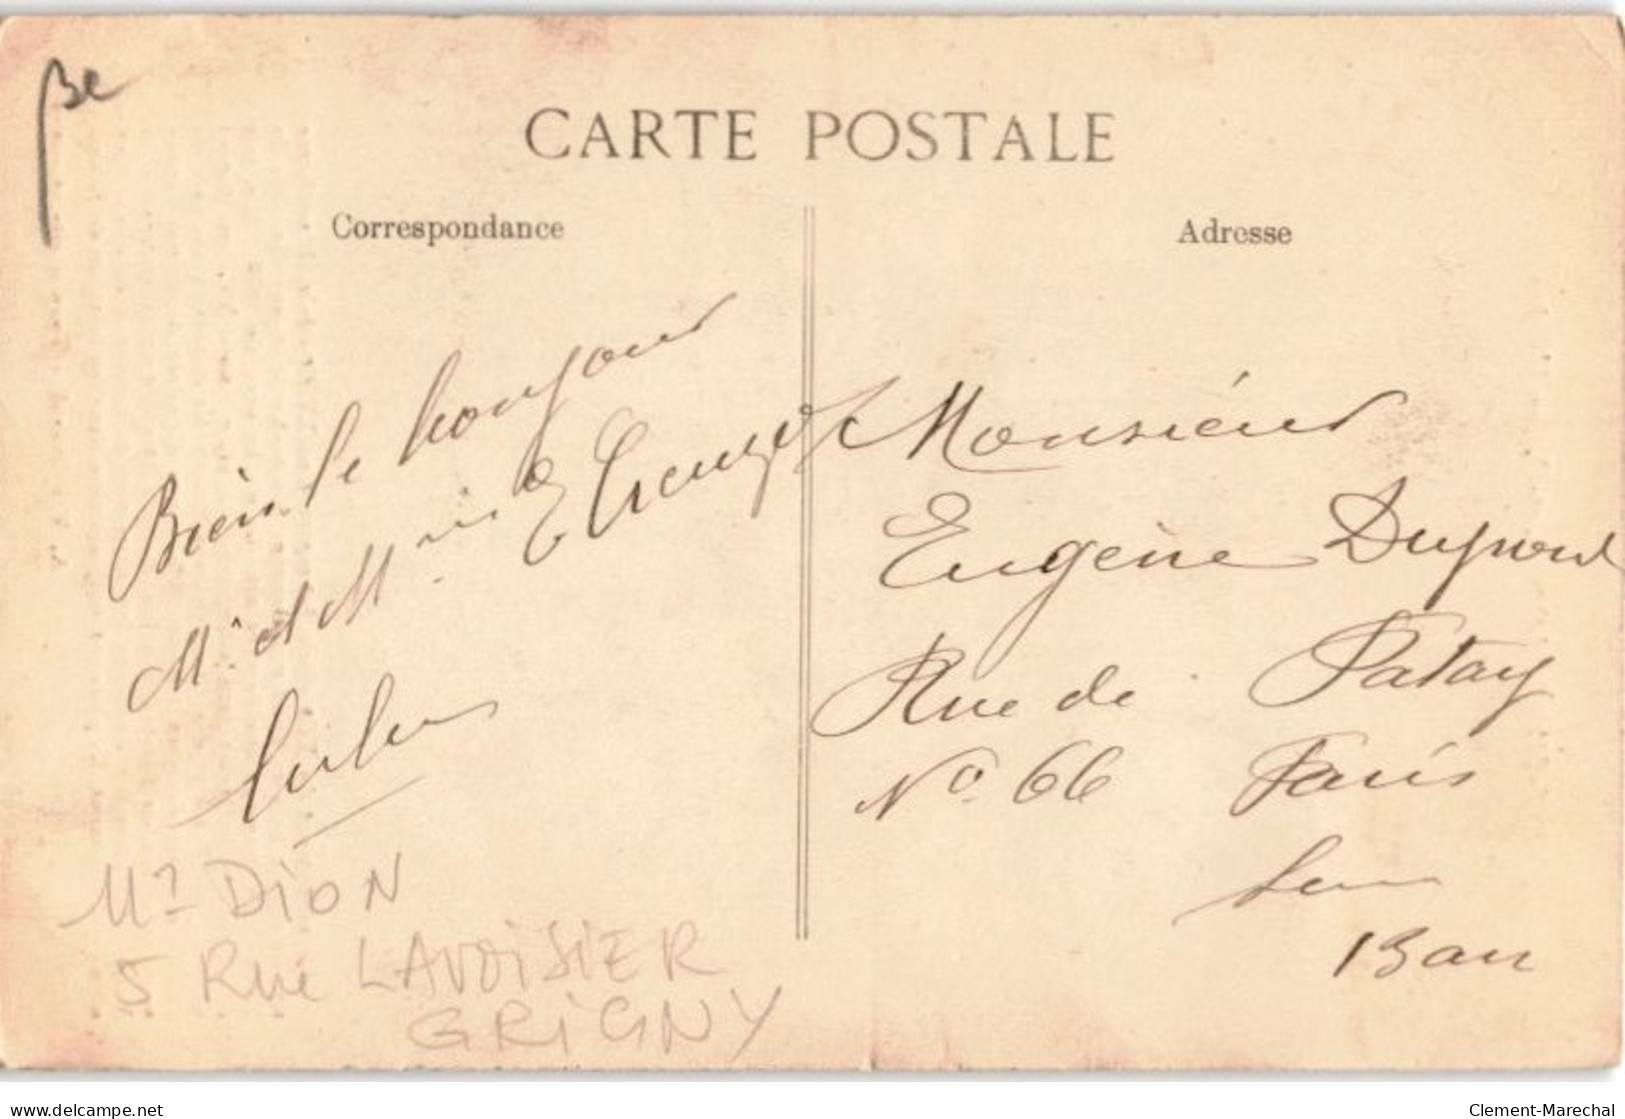 CARTE POSTALE
Correspondance
Adresse
Bien le bonjour
Mr et M
Monsieur
Eugène Dupont
Rue de Patay
No 66 Paris
13 arr
Mr DION
5 Rue LAVOISIER
GRIGNY
www.delcampe.net
Clement-Marechal